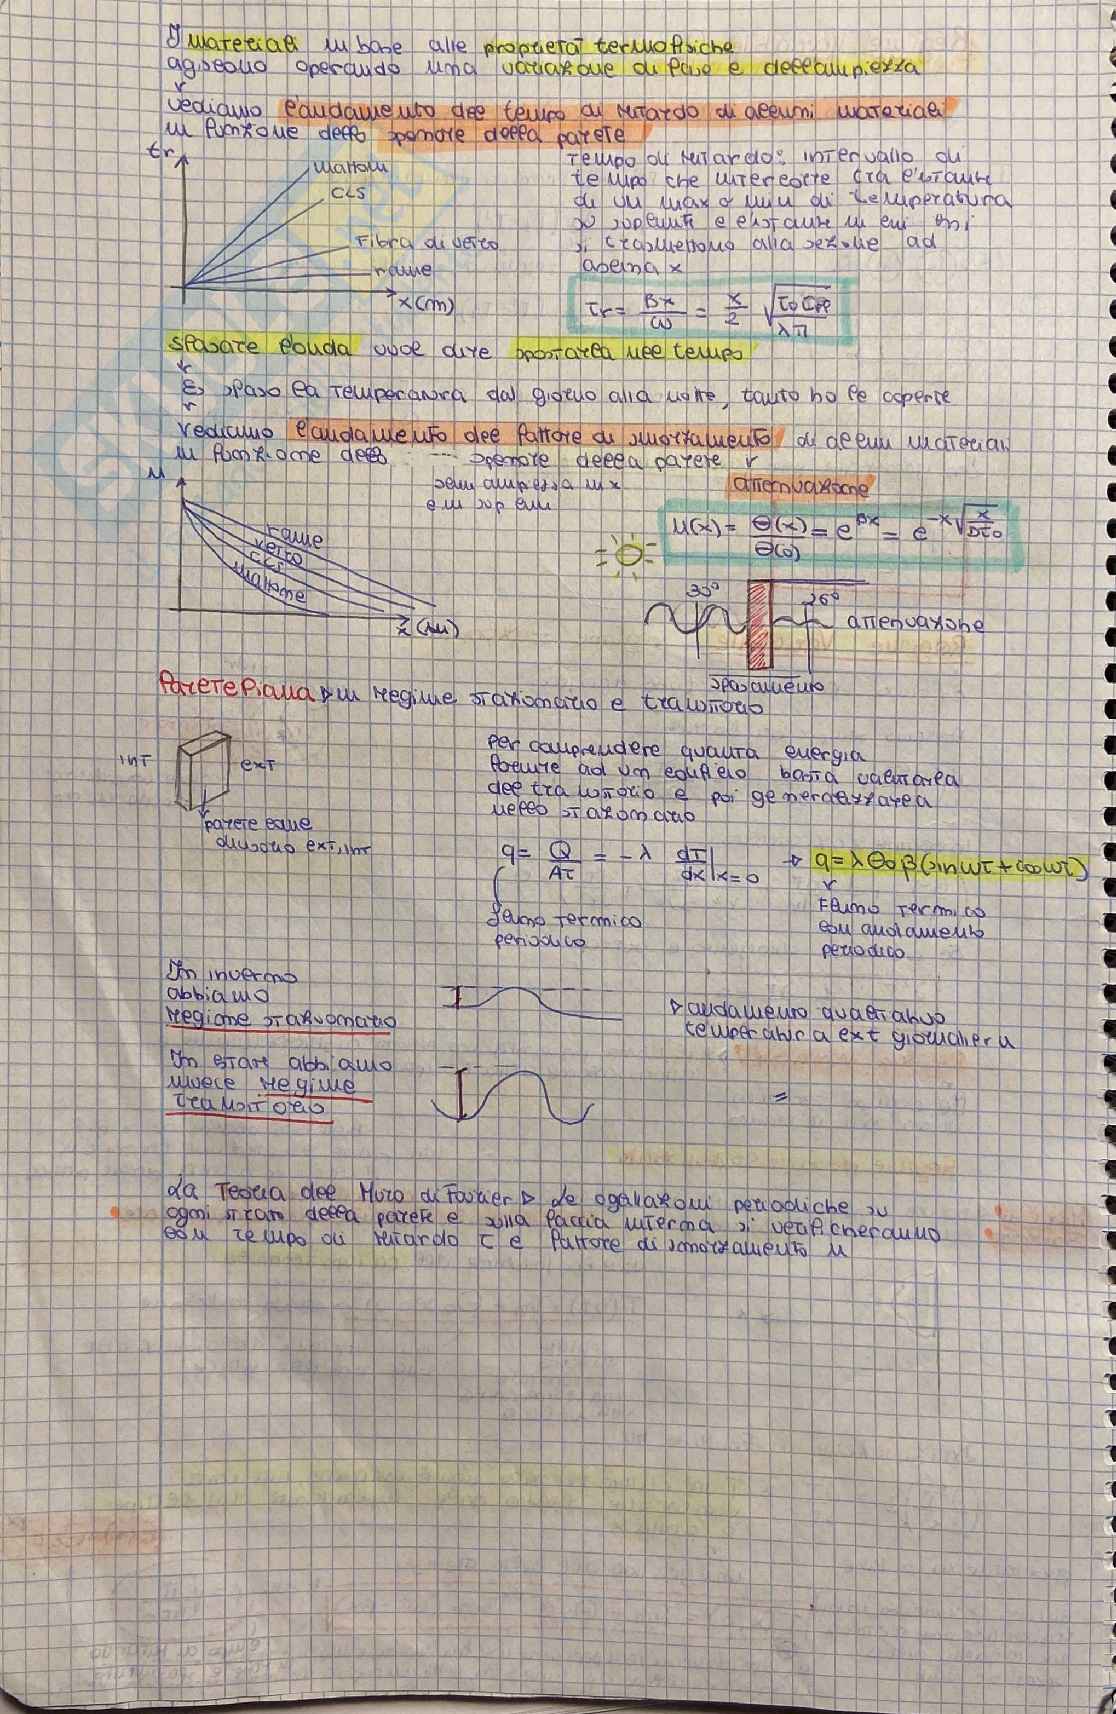 I materiali in base alle proprietà termofisiche
agiscono operando una variazione di fase e dell'ampiezza
vediamo l'andamento del tempo di ritardo di alcuni materiali
in funzione dello spessore della parete
tr
mattoni
CLS
Fibra di vetro
rame
x(m)
Tempo di ritardo: intervallo di
tempo che intercorre tra l'istante
di un max o min di temperatura
su superficie e l'istante in cui
si trasmettono alla sezione ad
ascissa x
τr = Bx/ω = x/2 √τ0 Cρ/λπ
sfasare l'onda vuol dire spostarla nel tempo
Es sfaso la temperatura dal giorno alla notte, tanto ho le coperte
vediamo l'andamento del fattore di smorzamento di alcuni materiali
in funzione dello spessore della parete
M
semiampiezza in x
e in sup
attenuazione
μ(x) = Θ(x)/Θ(0) = e^βx = e^-x√
rame
vetro
CLS
mattone
x(m)
35°
26°
attenuazione
sfasamento
Parete Piana in regime stazionario e transitorio
int
ext
parete come
divisorio ext, int
Per comprendere quanta energia
fornire ad un edificio basta valutarla
nel transitorio e poi generalizzarla
nello stazionario
q = Q/Aτ = -λ dT/dx|x=0
q = λ Θ0 β (sinωτ + cosωτ)
flusso termico
periodico
Flusso termico
con andamento
periodico
In inverno
abbiamo
regime stazionario
andamento qualitativo
temperatura ext giornaliera
In estate abbiamo
invece regime
transitorio
=
La Teoria del Muro di Fourier le oscillazioni periodiche su
ogni strato della parete e sulla faccia interna si verificheranno
con tempo di ritardo τ e fattore di smorzamento μ